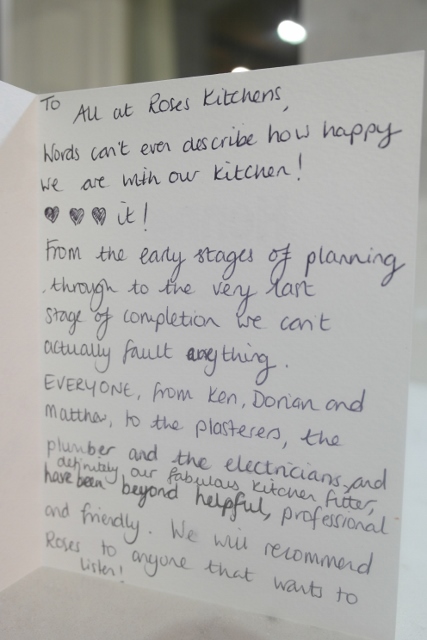 To All at Roses Kitchens,
Words can't even describe how happy
we are with our kitchen!
♥ ♥ ♥ it!
From the early stages of planning
through to the very last
stage of completion we can't
actually fault anything.
EVERYONE, from Ken, Dorian and
Matthew, to the plasterers, the
plumber and the electricians, and
definitely our fabulous kitchen fitter,
have been beyond helpful, professional
and friendly. We will recommend
Roses to anyone that wants to
listen!